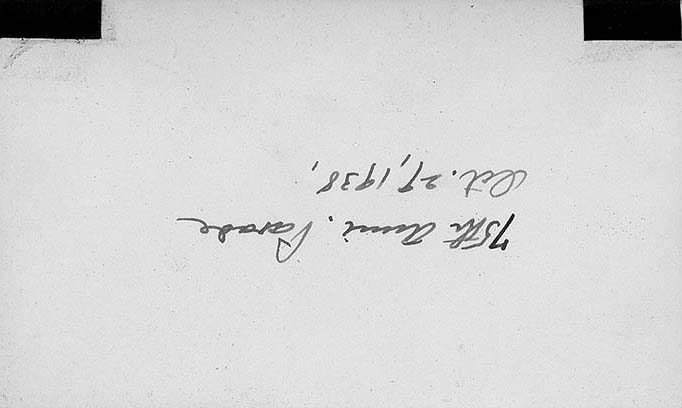 75th Anni. Parade
Oct. 27, 1938,